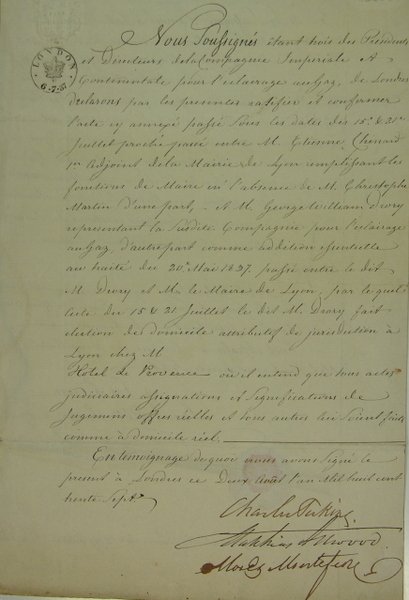 LONDON
6.7.37
Nous Soussignés étant trois des Présidents
et Directeurs de la Compagnie Impériale et
Continentale pour l'éclairage au Gaz, de Londres
déclarons par les présentes ratifier et confirmer
l'acte cy annexé passé sous les dates des 15 & 21
Juillet proche passé entre M. Etienne Chinard
1er Adjoint de la Mairie de Lyon remplissant les
fonctions de Maire en l'absence de M. Christophe
Martin d'une part, et M. George William Drory
représentant la susdite Compagnie pour l'éclairage
au Gaz, d'autre part comme addition essentielle
au traité du 20 Mai 1837 passé entre le dit
M Drory et M. le Maire de Lyon, par le quel
acte du 15 & 21 Juillet le dit M. Drory fait
élection de domicile attributif de juridiction à
Lyon chez M
Hôtel de Provence où il entend que tous actes
judiciaires assignations et significations de
Jugemens offres réelles et tous autres lui soient faits
comme à domicile réel.
En témoignage de quoi nous avons signé le
présent à Londres ce Deux Août l'an Mil huit cent
trente Sept.
Charles Perkins
Matthias Attwood
Moses Montefiore